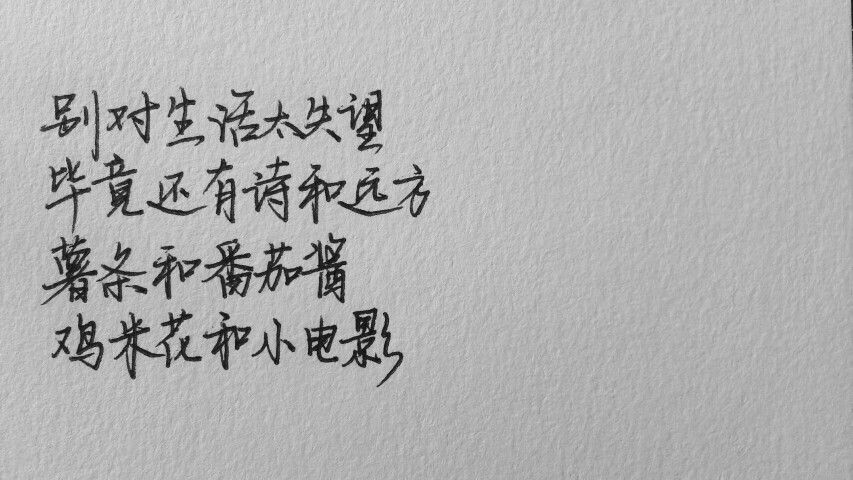 别对生活太失望
毕竟还有诗和远方
薯条和番茄酱
鸡米花和小电影